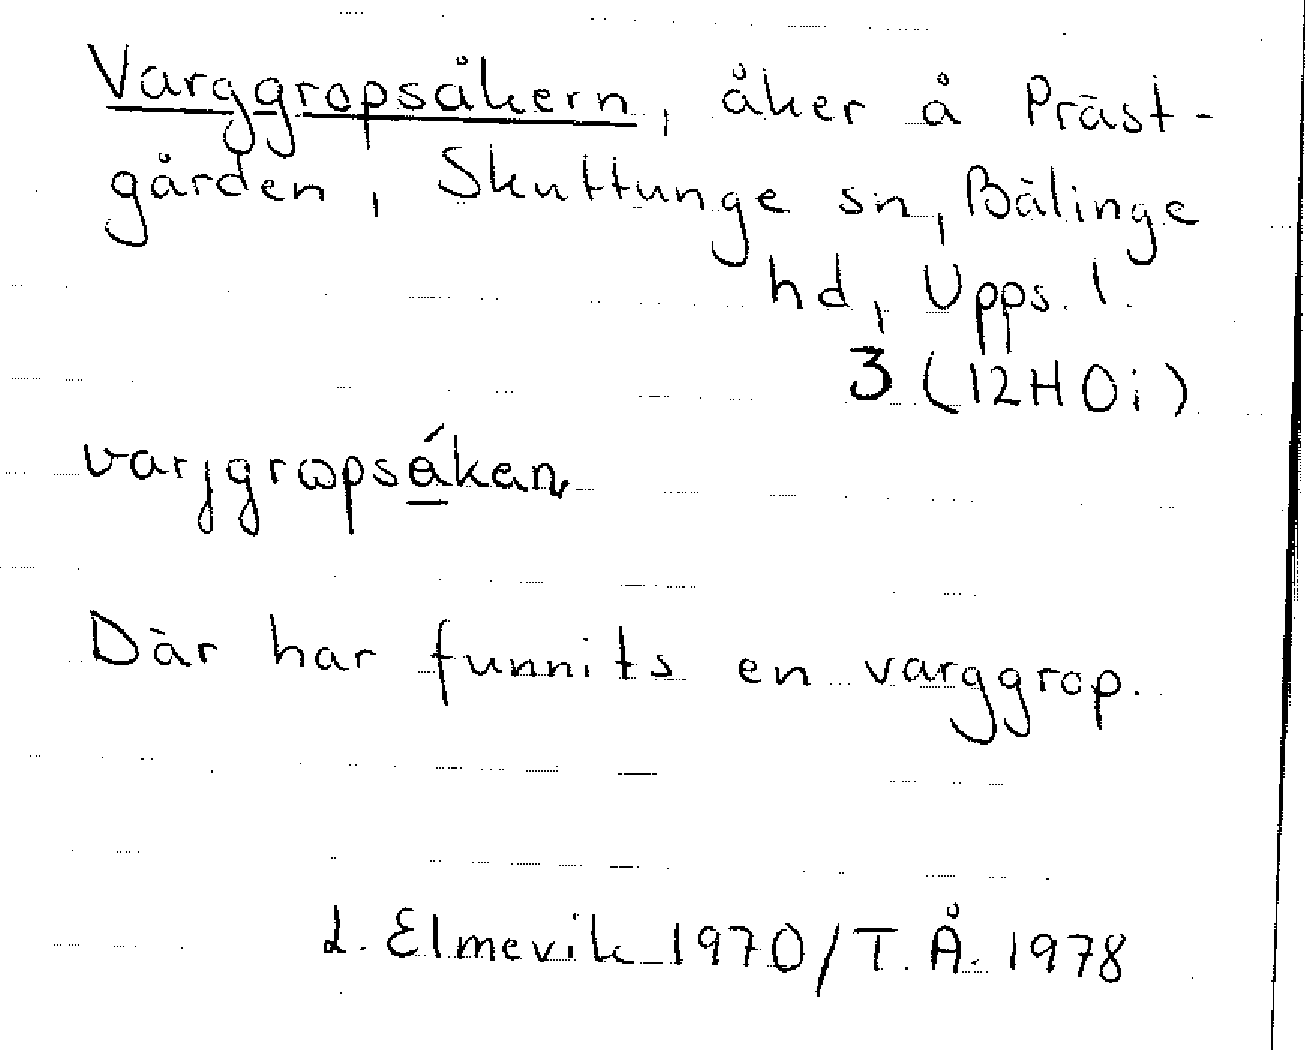 Varggropsåkern, åker å Präst-
gården, Skuttunge sn, Bälinge
hd, Upps. l.
3 (12H0i)
varjgrωpsákaɳ
Där har funnits en varggrop.
L. Elmevik 1970/T.Å. 1978